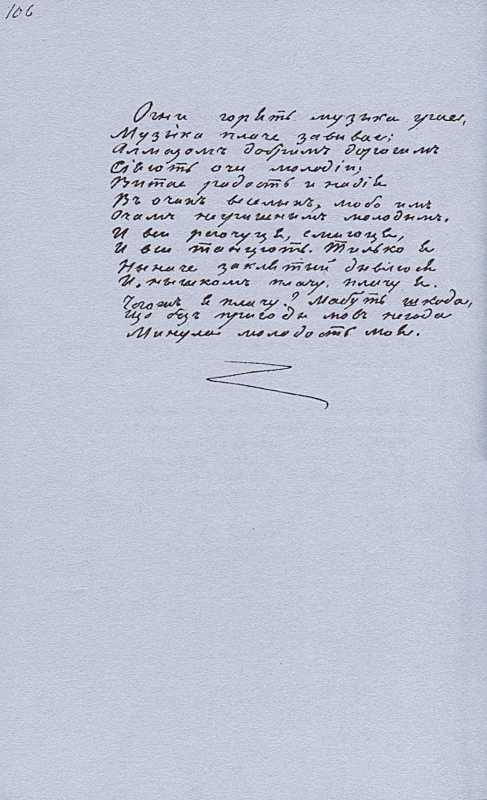 106
Огни горѣть музыка грае,
Музыка плаче завивае;
Алмазомъ добримъ дорогимъ
Сіяють очи молодіи;
Витае радость и надія
Въ очахъ веселыхъ, любо имъ
Очамъ негришнымъ молодымъ.
И вси регочуця, сміюця,
И вси танцюють. Тилько я
Неначе заклятый дивлюся
И нышкомъ плачу, плачу я.
Чогожъ я плачу? Мабуть шкода,
Що безъ пригоды мовъ негода
Минула молодость моя.